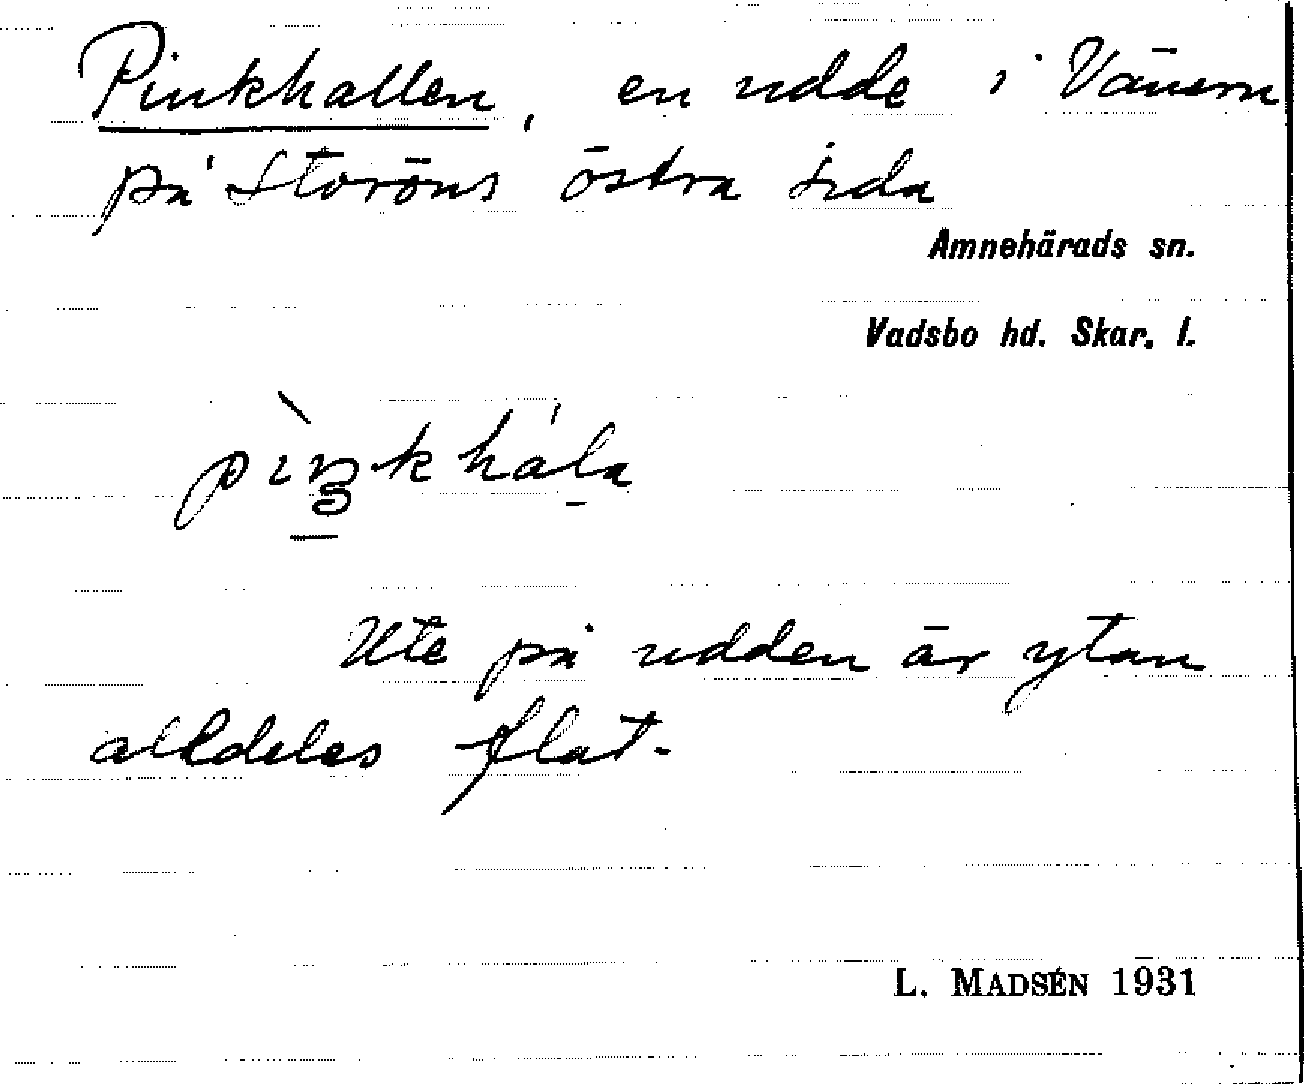 Pinkhallen, en udde i Vänern
på Storöns östra sida
Amnehärads sn.
Vadsbo hd. Skar. l.
pìŋkhála
Ute på udden är ytan
alldeles flat.
L. MADSÉN 1931